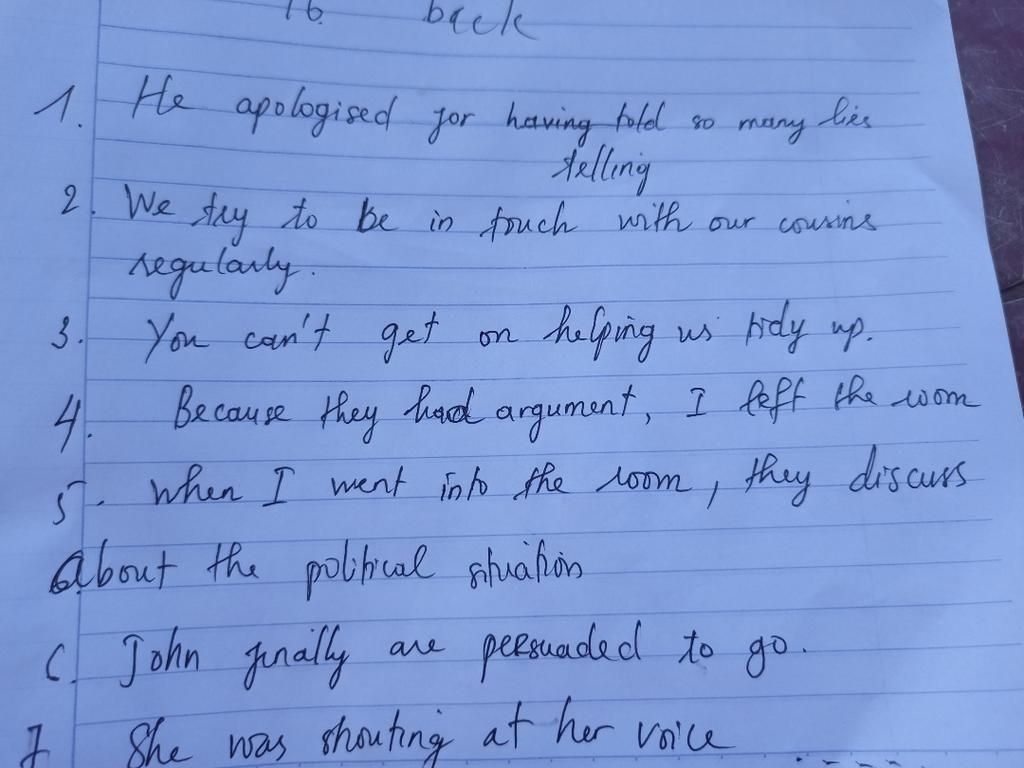 16. back
1. He apologised for having told so many lies
telling
2. We try to be in touch with our cousins
regularly.
3. You can't get on helping us tidy up.
4. Because they had argument, I left the room
5. when I went into the room, they discuss
about the political situation
6. John finally are persuaded to go.
7 She was shouting at her voice